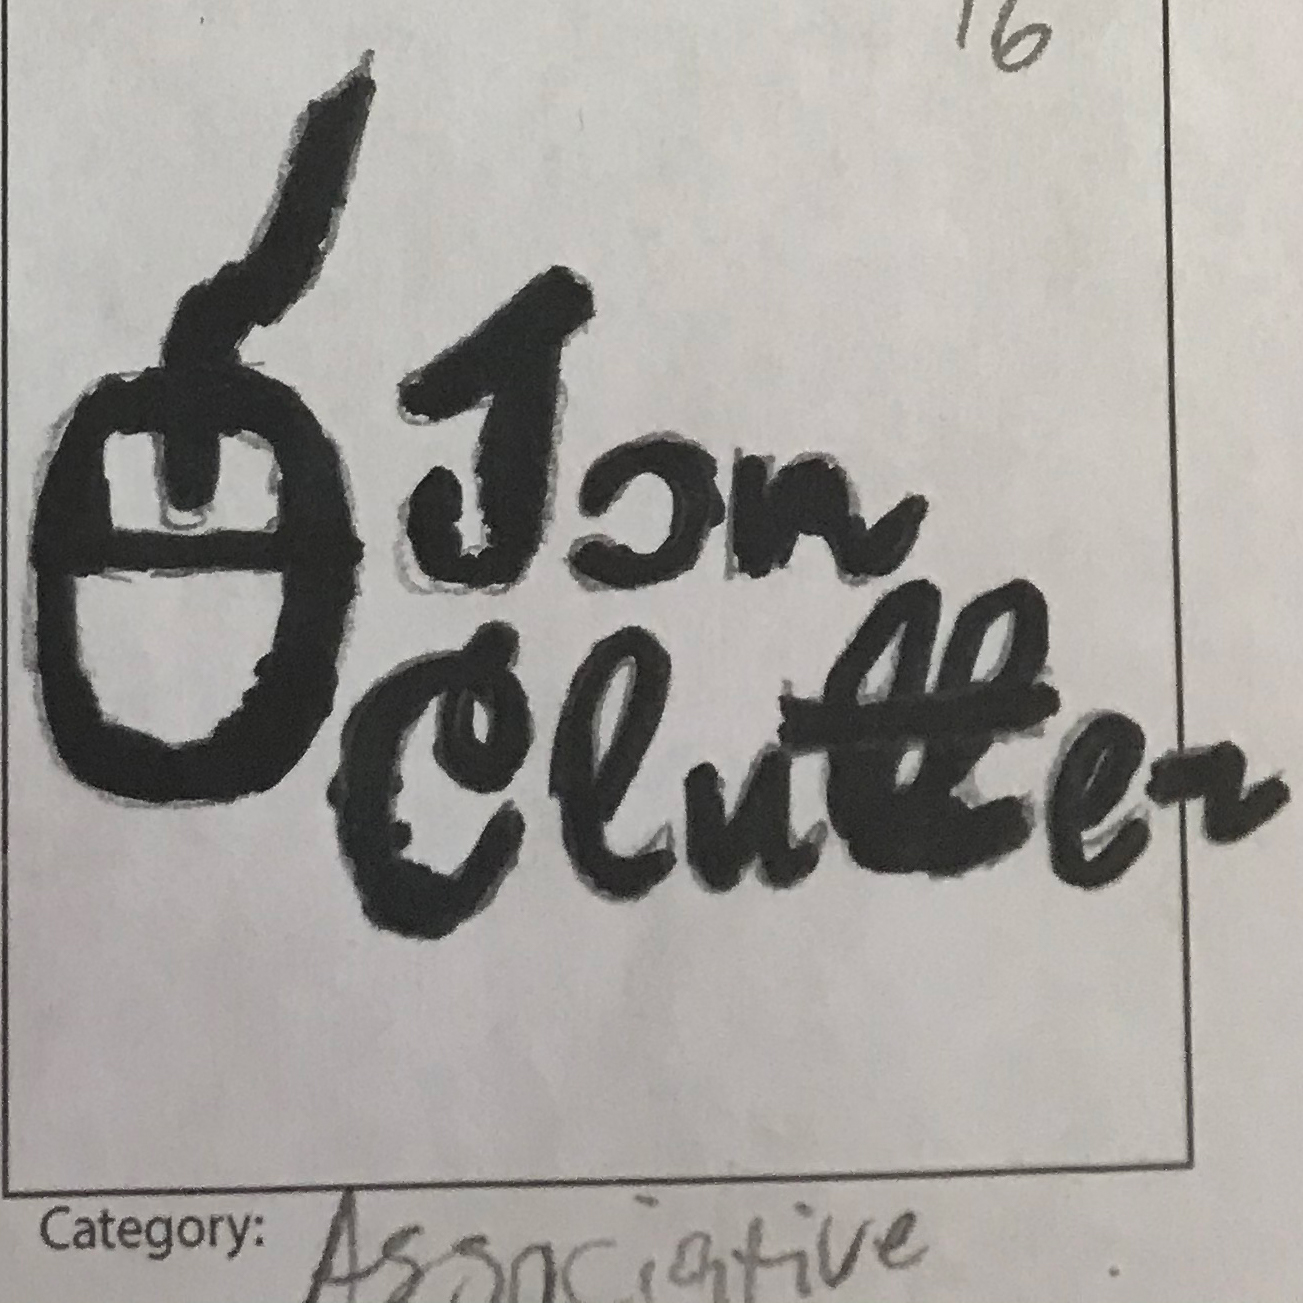 16
Jon
Clutter
Category: Associative